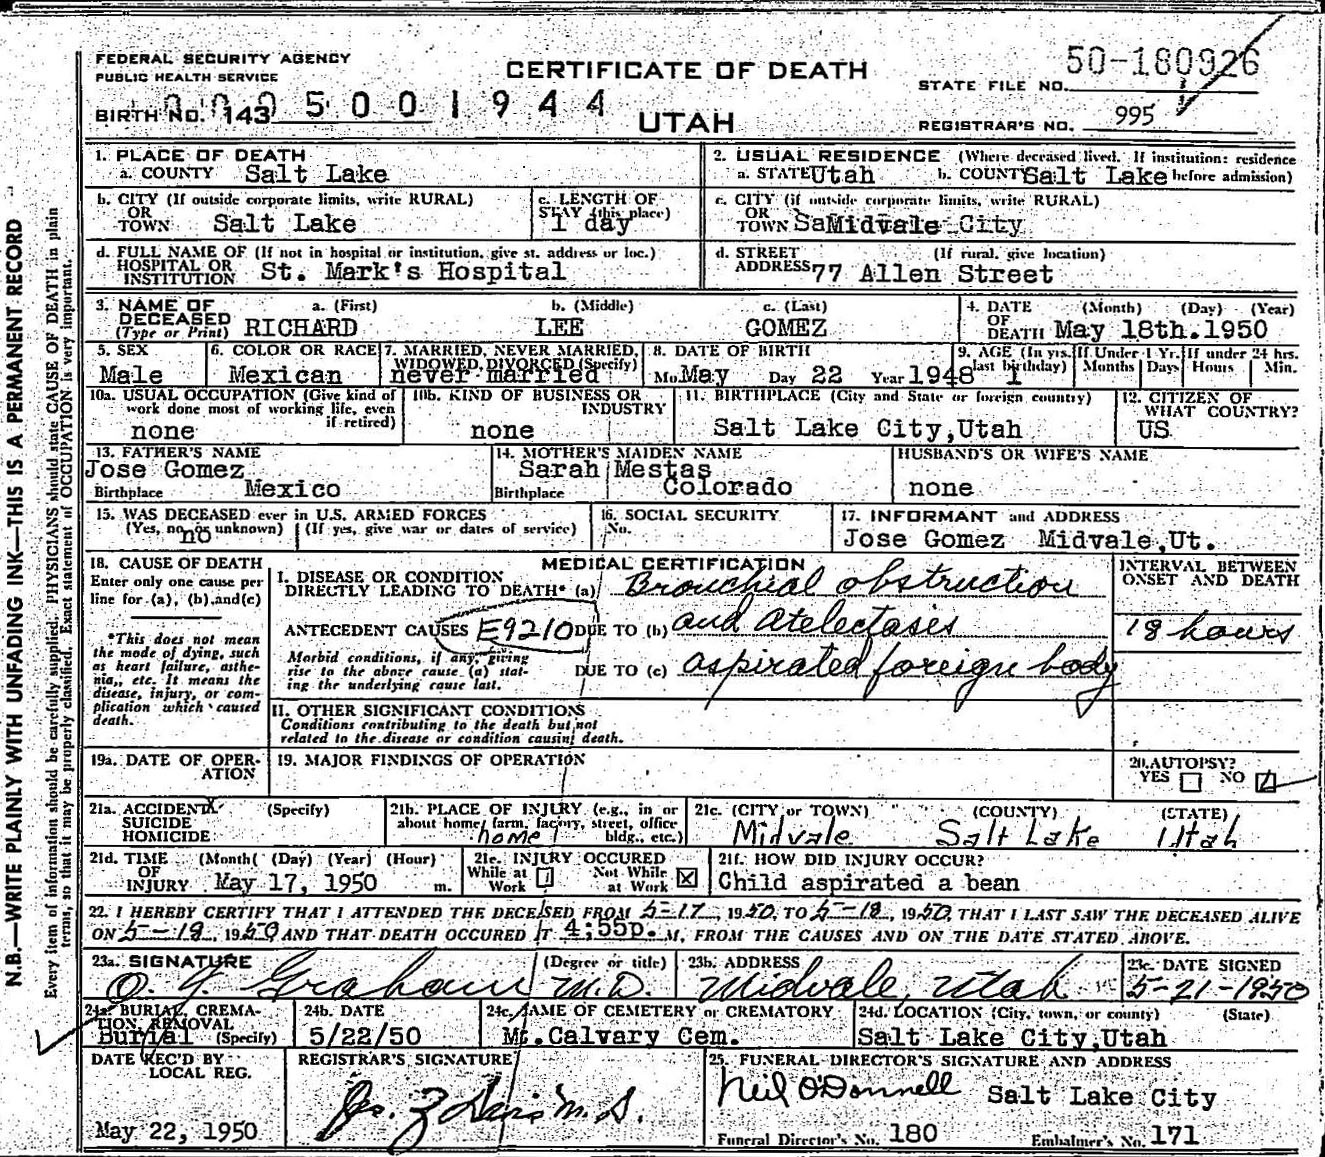 FEDERAL SECURITY AGENCY
PUBLIC HEALTH SERVICE
CERTIFICATE OF DEATH
UTAH
STATE FILE NO. 50-180926
BIRTH NO. 143 0005001944
REGISTRAR'S NO. 995
N.B.—WRITE PLAINLY WITH UNFADING INK—THIS IS A PERMANENT RECORD
Every item of information should be carefully supplied. PHYSICIANS should state CAUSE OF DEATH in plain
terms, so that it may be properly classified. Exact statement of OCCUPATION is very important.
1. PLACE OF DEATH
a. COUNTY Salt Lake
2. USUAL RESIDENCE (Where deceased lived. If institution: residence
a. STATE Utah b. COUNTY Salt Lake before admission)
b. CITY (If outside corporate limits, write RURAL)
OR
TOWN Salt Lake
c. LENGTH OF
STAY (this place)
1 day
c. CITY (if outside corporate limits, write RURAL)
OR
TOWN Midvale City
d. FULL NAME OF (If not in hospital or institution, give st. address or loc.)
HOSPITAL OR
INSTITUTION St. Mark's Hospital
d. STREET (If rural, give location)
ADDRESS 77 Allen Street
3. NAME OF DECEASED a. (First) b. (Middle) c. (Last)
(Type or Print) RICHARD LEE GOMEZ
4. DATE OF DEATH (Month) (Day) (Year)
May 18th.1950
5. SEX
Male
6. COLOR OR RACE
Mexican
7. MARRIED, NEVER MARRIED,
WIDOWED, DIVORCED (Specify)
never married
8. DATE OF BIRTH
Mo. May Day 22 Year 1948
9. AGE (In yrs. last birthday) 1
If Under 1 Yr. Months Days
If under 24 hrs. Hours Min.
10a. USUAL OCCUPATION (Give kind of
work done most of working life, even
if retired)
none
10b. KIND OF BUSINESS OR
INDUSTRY
none
11. BIRTHPLACE (City and State or foreign country)
Salt Lake City,Utah
12. CITIZEN OF
WHAT COUNTRY?
US
13. FATHER'S NAME
Jose Gomez
Birthplace Mexico
14. MOTHER'S MAIDEN NAME
Sarah Mestas
Birthplace Colorado
HUSBAND'S OR WIFE'S NAME
none
15. WAS DECEASED ever in U.S. ARMED FORCES
(Yes, no or unknown) (If yes, give war or dates of service)
no
16. SOCIAL SECURITY
No.
17. INFORMANT and ADDRESS
Jose Gomez Midvale,Ut.
18. CAUSE OF DEATH
Enter only one cause per
line for (a), (b), and (c)
*This does not mean
the mode of dying, such
as heart failure, asthe-
nia, etc. It means the
disease, injury, or com-
plication which caused
death.
MEDICAL CERTIFICATION
I. DISEASE OR CONDITION
DIRECTLY LEADING TO DEATH* (a) Bronchial obstruction
ANTECEDENT CAUSES E9210 DUE TO (b) and Atelectasis
Morbid conditions, if any, giving
rise to the above cause (a) stat-
ing the underlying cause last.
DUE TO (c) aspirated foreign body
INTERVAL BETWEEN
ONSET AND DEATH
18 hours
II. OTHER SIGNIFICANT CONDITIONS
Conditions contributing to the death but not
related to the disease or condition causing death.
19a. DATE OF OPER-
ATION
19. MAJOR FINDINGS OF OPERATION
20. AUTOPSY?
YES NO
21a. ACCIDENT X (Specify)
SUICIDE
HOMICIDE
21b. PLACE OF INJURY (e.g., in or
about home, farm, factory, street, office
bldg., etc.)
home
21c. (CITY or TOWN) (COUNTY) (STATE)
Midvale Salt Lake Utah
21d. TIME OF INJURY (Month) (Day) (Year) (Hour)
May 17, 1950 m.
21e. INJURY OCCURED
While at Work Not While at Work X
21f. HOW DID INJURY OCCUR?
Child aspirated a bean
22. I HEREBY CERTIFY THAT I ATTENDED THE DECEASED FROM 5-17, 1950, TO 5-18, 1950, THAT I LAST SAW THE DECEASED ALIVE
ON 5-18, 1950 AND THAT DEATH OCCURED AT 4;55p. M, FROM THE CAUSES AND ON THE DATE STATED ABOVE.
23a. SIGNATURE (Degree or title)
O. J. Graham M.D.
23b. ADDRESS
Midvale, Utah
23c. DATE SIGNED
5-21-1950
24a. BURIAL, CREMA-
TION, REMOVAL
Burial (Specify)
24b. DATE
5/22/50
24c. NAME OF CEMETERY or CREMATORY
Mt.Calvary Cem.
24d. LOCATION (City, town, or county) (State)
Salt Lake City,Utah
DATE REC'D BY
LOCAL REG.
May 22, 1950
REGISTRAR'S SIGNATURE
25. FUNERAL DIRECTOR'S SIGNATURE AND ADDRESS
Neil O'Donnell Salt Lake City
Funeral Director's No. 180 Embalmer's No. 171